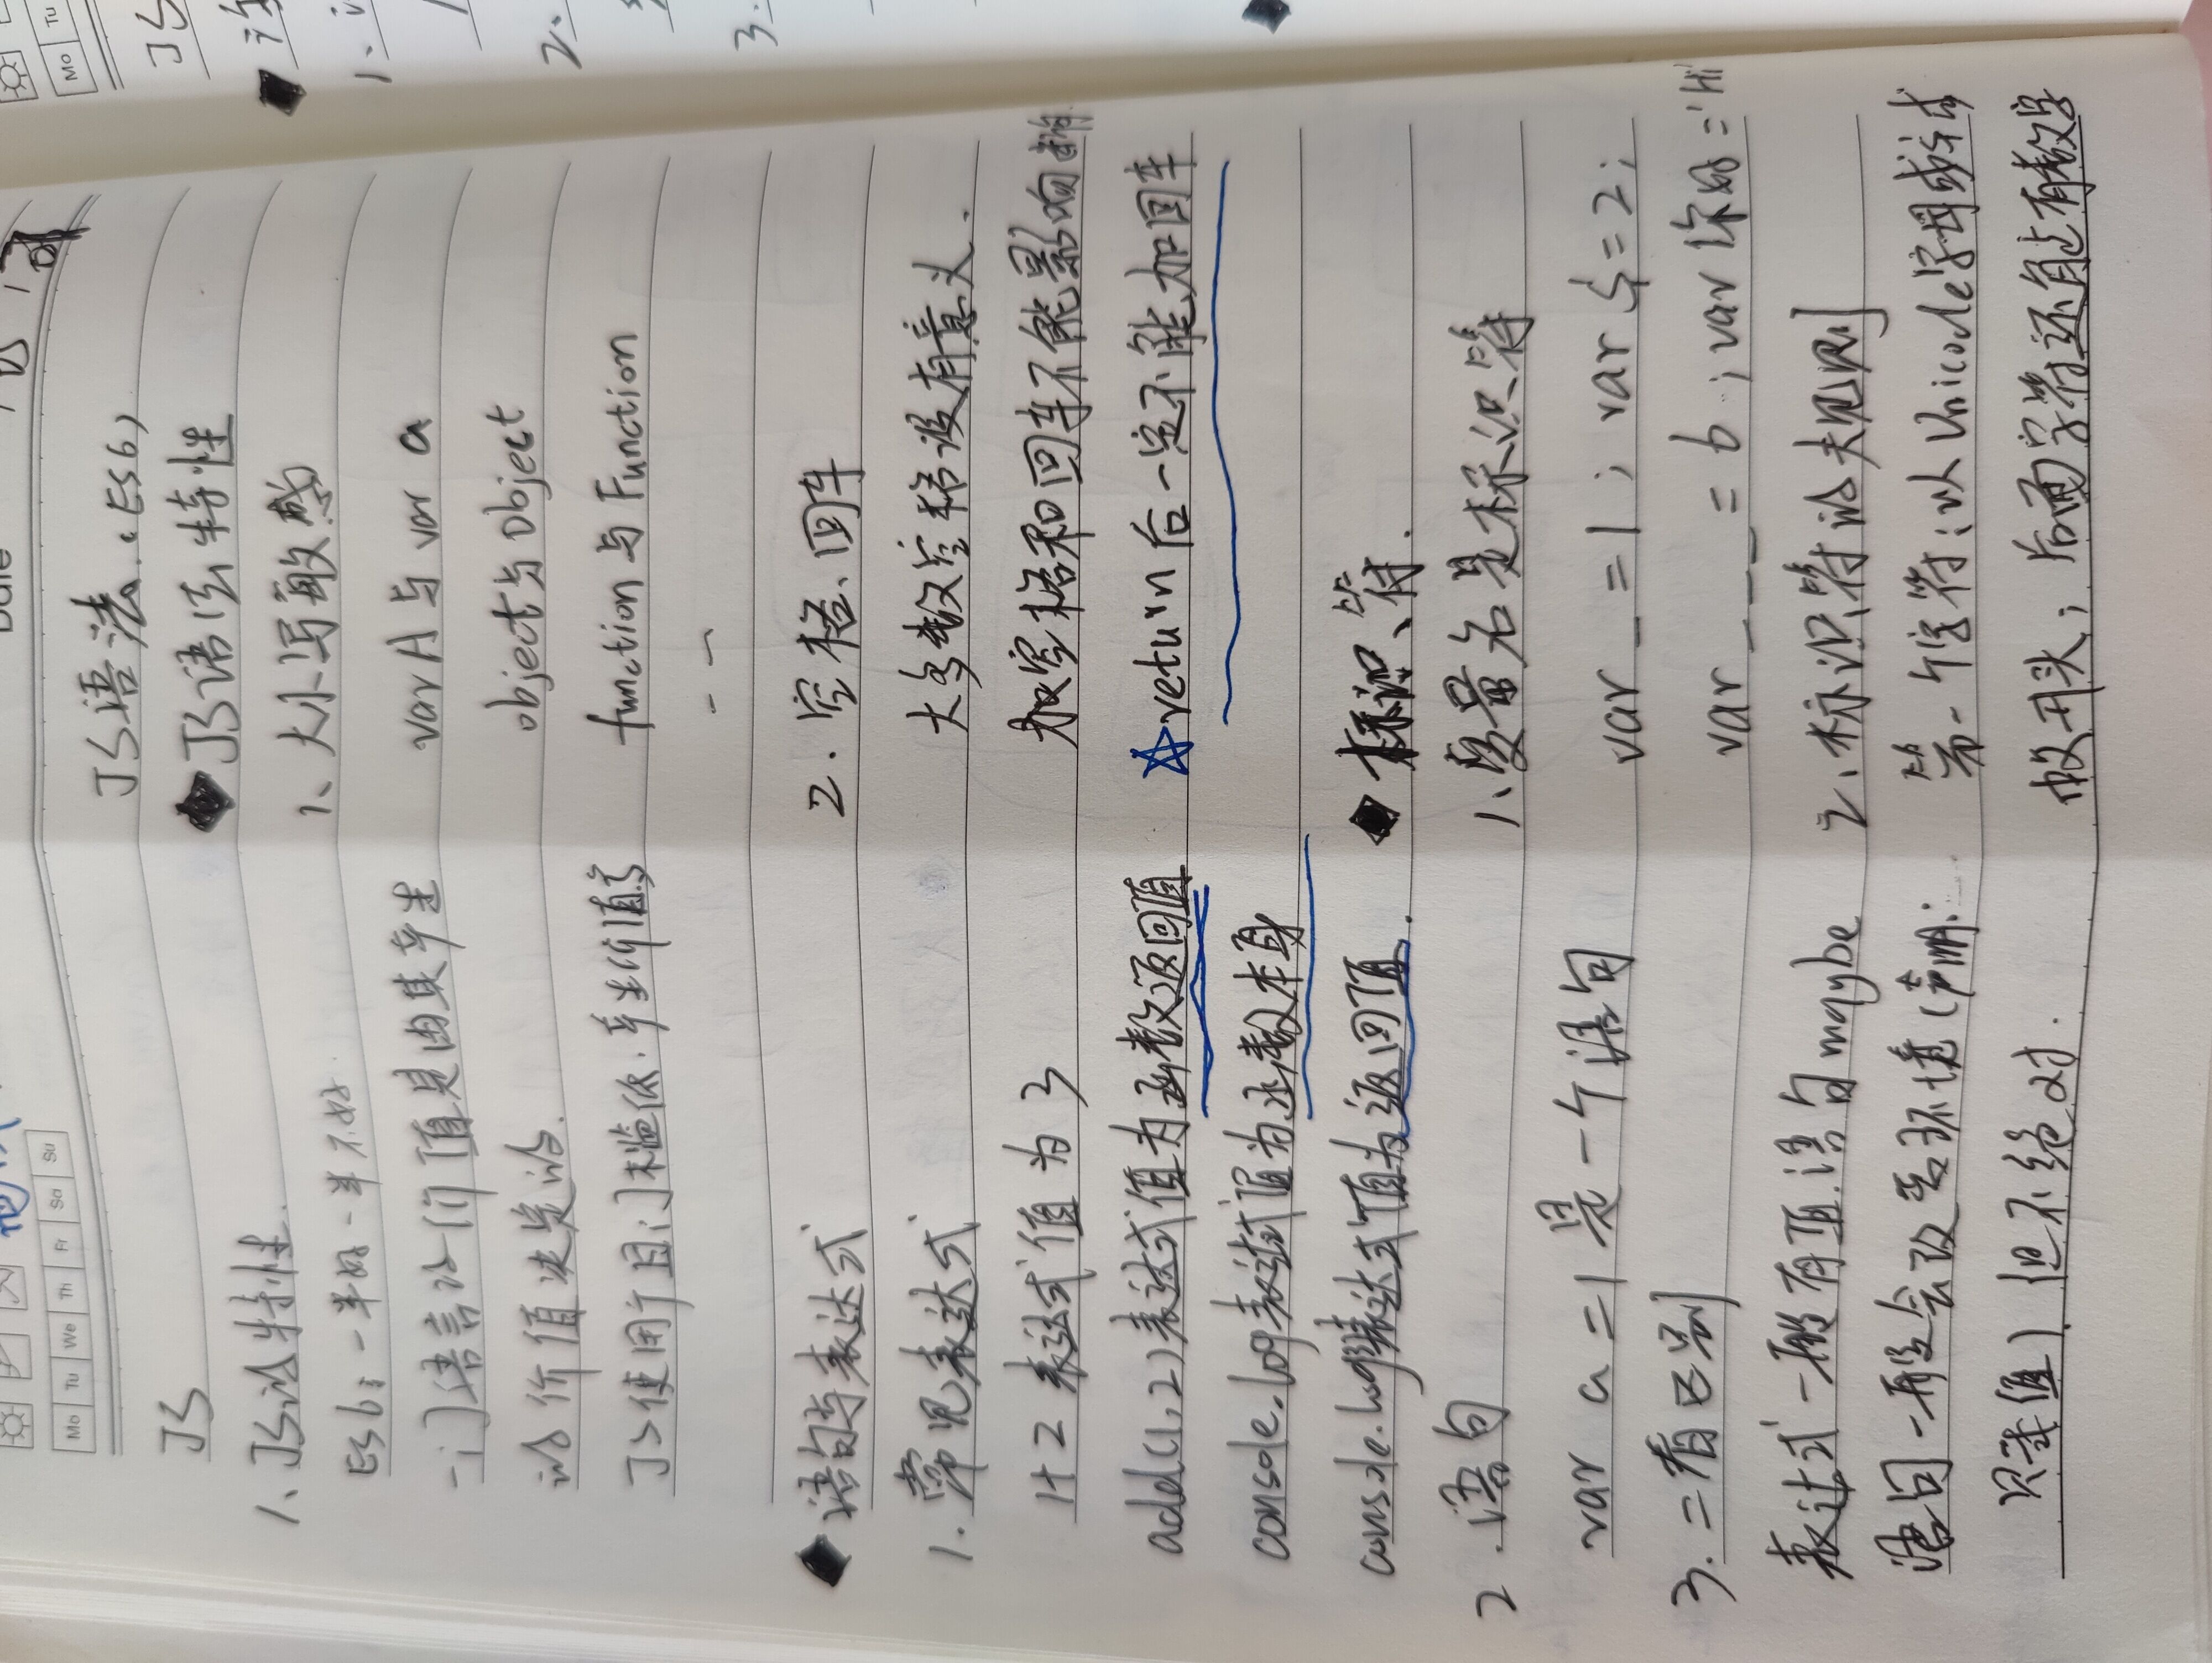 Mo Tu We Th Fr Sa Su
JS
1、JS的特性.
ES6: 一半好一半不好
一门语言的价值是由其产生
的价值决定的.
JS使用广且门槛低.产生价值高
◆语句与表达式
1. 常见表达式
1+2 表达式值为 3
add(1,2)表达式值为函数返回值
console.log表达式值为函数本身
console.log表达式值为返回值.
2.语句
var a=1是一个语句
3.二者区别
表达式一般有值.语句maybe
语句一般会改变环境(声明:
赋值).但不绝对.
Date
JS语法.(ES6)
◆JS语法特性
1、大小写敏感
var A与var a
object与Object
function与Function
2.空格、回车
大多数空格没有意义.
加空格和回车不能影响
☆return后一定不能加回车
◆标识符.
1、变量名是标识符
var _ =1; var $=2;
var _ _ _ = 6 ;var 你好='Hi'
2、标识符的规则
第一个字符:以Unicode字母或
开头;后面字符还能有数字
Mo Tu
JS
1、
2、
3.